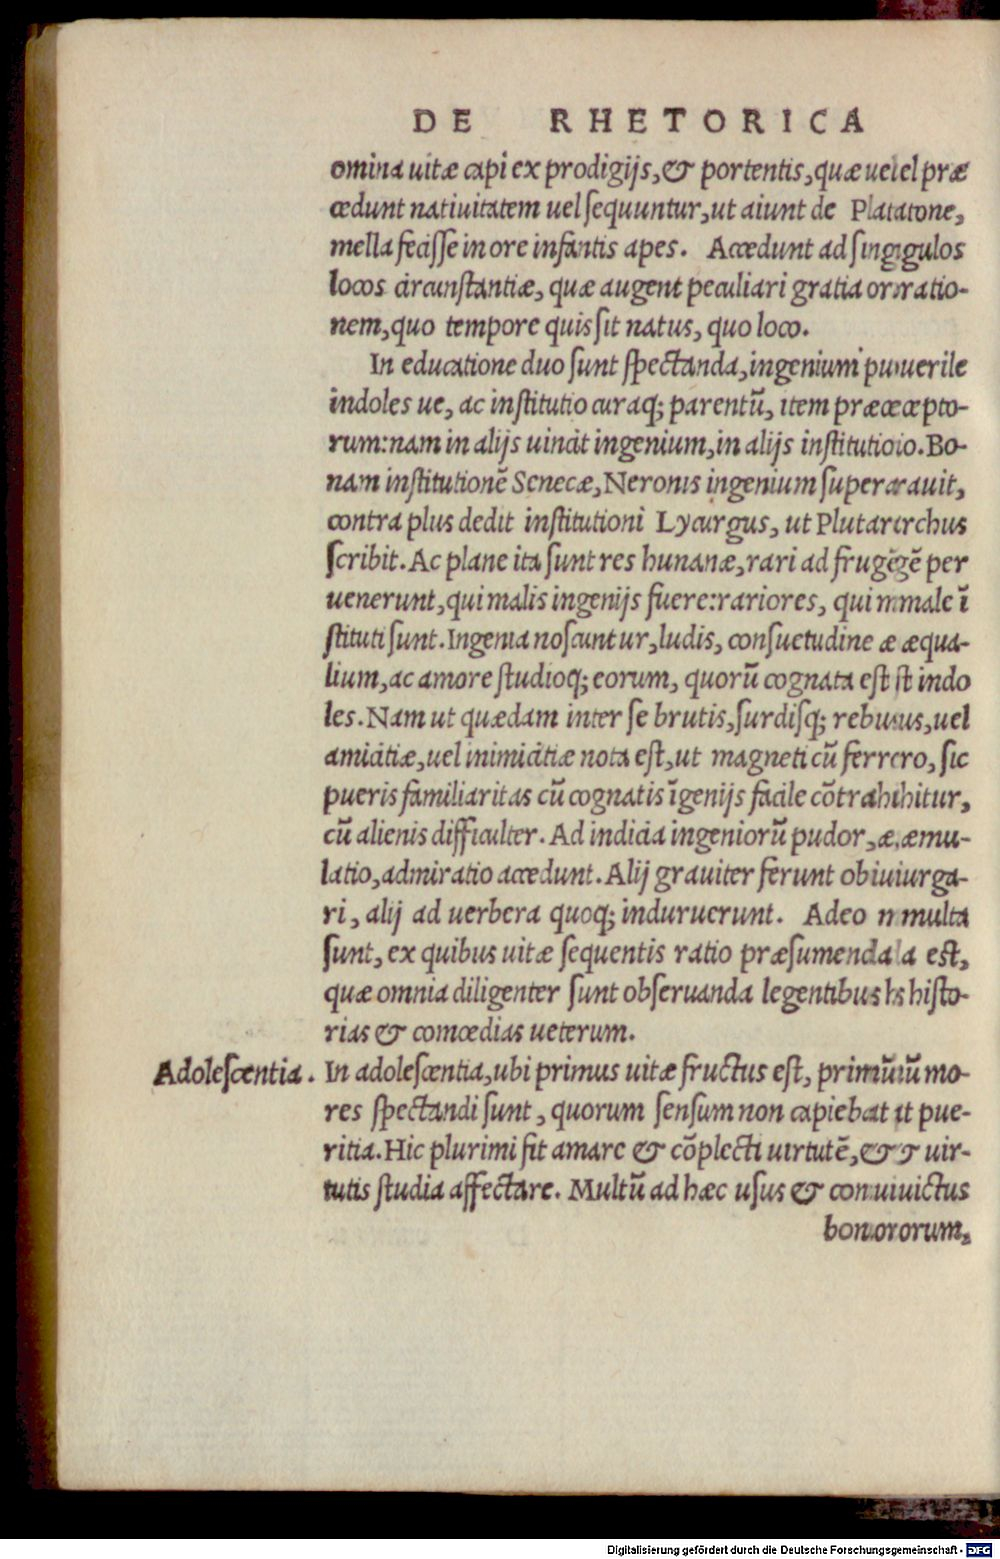 DE RHETORICA
omina uitæ capi ex prodigijs, & portentis, quæ uel præ
cedunt natiuitatem uel sequuntur, ut aiunt de Platone,
mella fecisse in ore infantis apes. Accedunt ad singulos
locos circunstantiæ, quæ augent peculiari gratia oratio-
nem, quo tempore quis sit natus, quo loco.
In educatione duo sunt spectanda, ingenium puerile
indoles ue, ac institutio curaq; parentũ, item præcepto-
rum: nam in alijs uincit ingenium, in alijs institutio. Bo-
nam institutionẽ Senecæ, Neronis ingenium superauit,
contra plus dedit institutioni Lycurgus, ut Plutarchus
scribit. Ac plane ita sunt res humanæ, rari ad frugẽ per
uenerunt, qui malis ingenijs fuere: rariores, qui male ĩ
stituti sunt. Ingenia noscuntur, ludis, consuetudine æqua-
lium, ac amore studioq; eorum, quorũ cognata est indo
les. Nam ut quædam inter se brutis, surdisq; rebus, uel
amicitiæ, uel inimicitiæ nota est, ut magneti cũ ferro, sic
pueris familiaritas cũ cognatis ĩgenijs facile cõtrahitur,
cũ alienis difficulter. Ad indicia ingeniorũ pudor, æmu-
latio, admiratio accedunt. Alij grauiter ferunt obiurga-
ri, alij ad uerbera quoq; induruerunt. Adeo multa
sunt, ex quibus uitæ sequentis ratio præsumenda est,
quæ omnia diligenter sunt obseruanda legentibus histo-
rias & comœdias ueterum.
Adolescentia. In adolescentia, ubi primus uitæ fructus est, primũ mo-
res spectandi sunt, quorum sensum non capiebat pue-
ritia. Hic plurimi fit amare & cõplecti uirtutẽ, & uir-
tutis studia affectare. Multũ ad hæc usus & conuictus
bonorum,
Digitalisierung gefördert durch die Deutsche Forschungsgemeinschaft - DFG